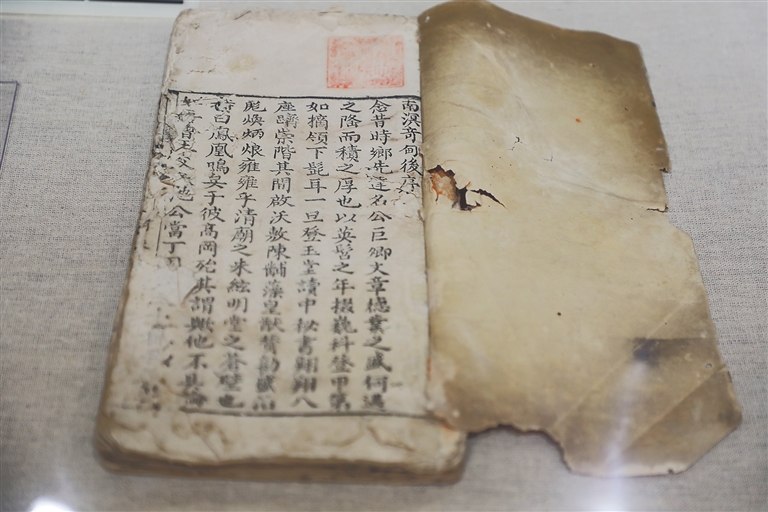 南溟奇甸後序
念昔時鄉先達名公巨卿文章德業之盛何遇
之隆而積之厚也以英髫之年掇巍科登甲第
如摘頷下髭耳一旦登玉堂讀中祕書翱翔八
座躋崇階其間啟沃敷陳黼藻皇猷贊勷盛治
彪煥炳烺雍雍乎清廟之朱絃明堂之蒼璧也
詩曰鳳凰鳴矣于彼高岡殆其謂歟他不具論
如 曾王父 池公當丁